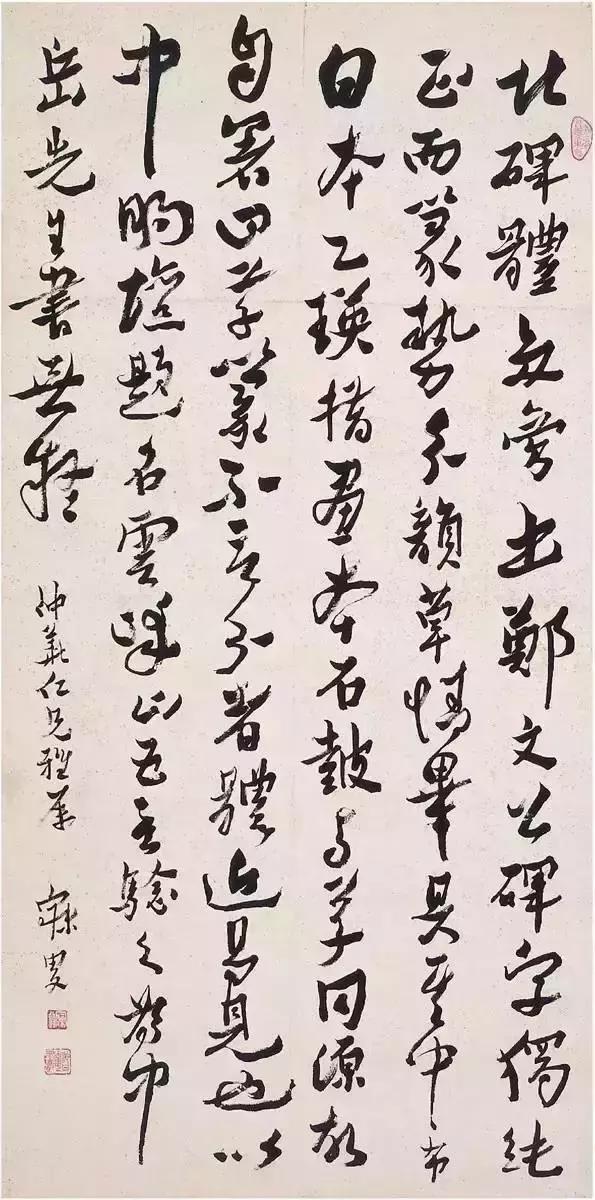 北碑體多旁出鄭文公碑字獨純
正而篆勢分韻草情畢具其中布
白本乙瑛措畫本石鼓與草同源故
自署曰草篆不言分者體近易見也以
中明壇題名雲峰山五言驗之為中
岳先生書無疑
仲仁兄雅屬 寐叟